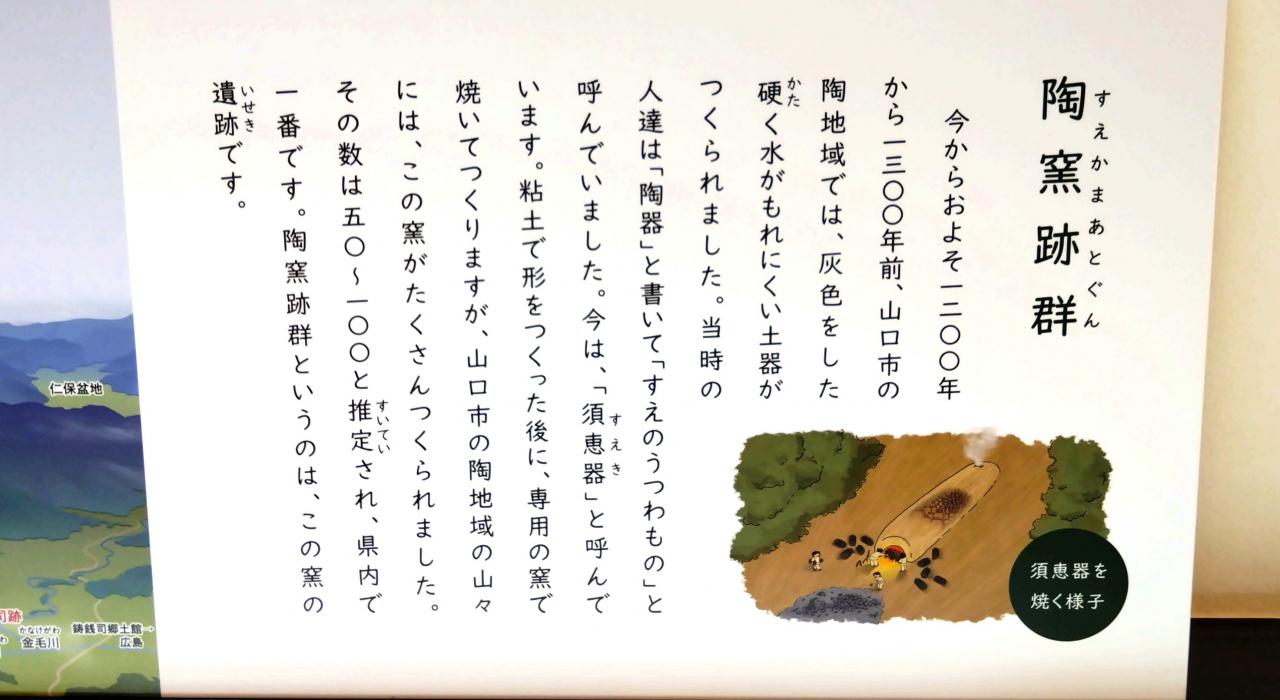 陶窯跡群
すえかまあとぐん
今からおよそ一二〇〇年
から一三〇〇年前、山口市の
陶地域では、灰色をした
硬く水がもれにくい土器が
かた
つくられました。当時の
人達は「陶器」と書いて「すえのうつわもの」と
呼んでいました。今は、「須恵器」と呼んで
すえき
います。粘土で形をつくった後に、専用の窯で
焼いてつくりますが、山口市の陶地域の山々
には、この窯がたくさんつくられました。
その数は五〇〜一〇〇と推定され、県内で
すいてい
一番です。陶窯跡群というのは、この窯の
遺跡です。
いせき
須恵器を
焼く様子
仁保盆地
司跡
かなけがわ
金毛川
鋳銭司郷土館→
広島